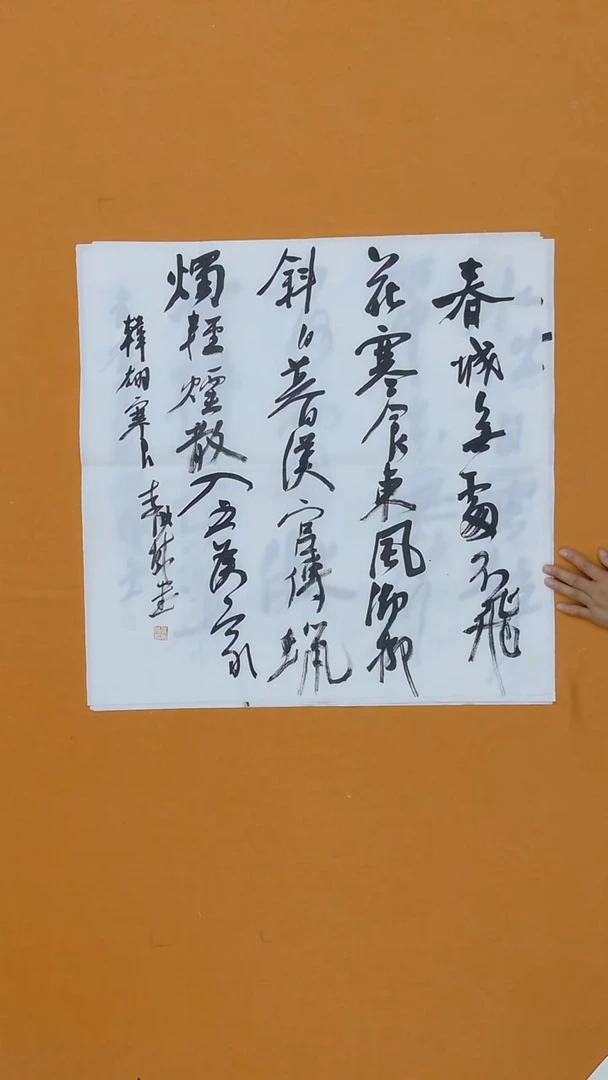 春城無處不飛
花寒食東風御柳
斜日暮漢宮傳蠟
燭輕煙散入五侯家
韓翃寒食 林書